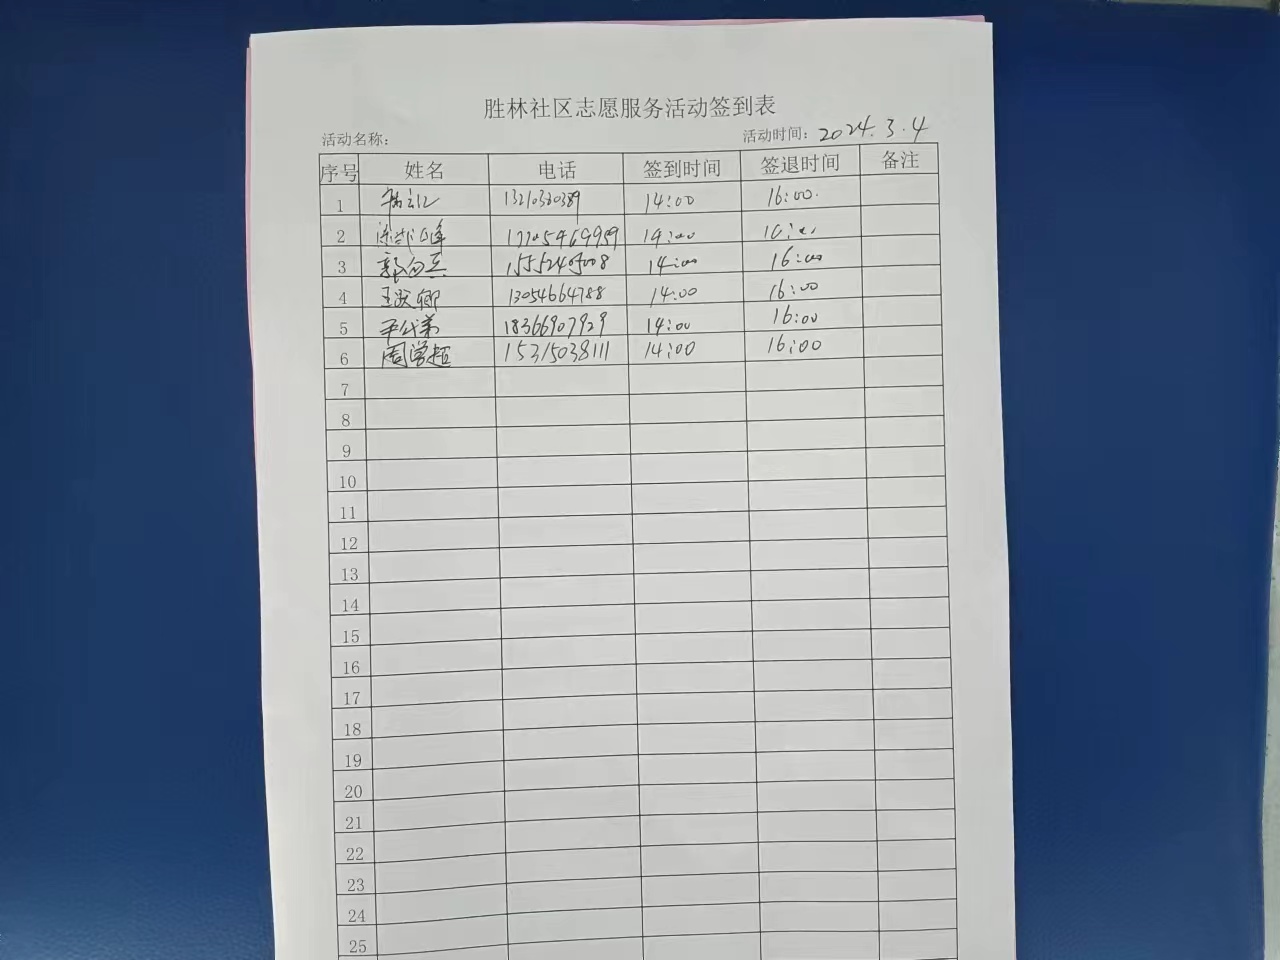 胜林社区志愿服务活动签到表
活动名称： 活动时间：2024.3.4
序号 姓名 电话 签到时间 签退时间 备注
1 14:00 16:00.
2 14:00
3 15552405008 14:00 16:00
4 王跃卿 13054664788 14:00 16:00
5 18366907929 14:00 16:00
6 周学超 15315038111 14:00 16:00
7
8
9
10
11
12
13
14
15
16
17
18
19
20
21
22
23
24
25